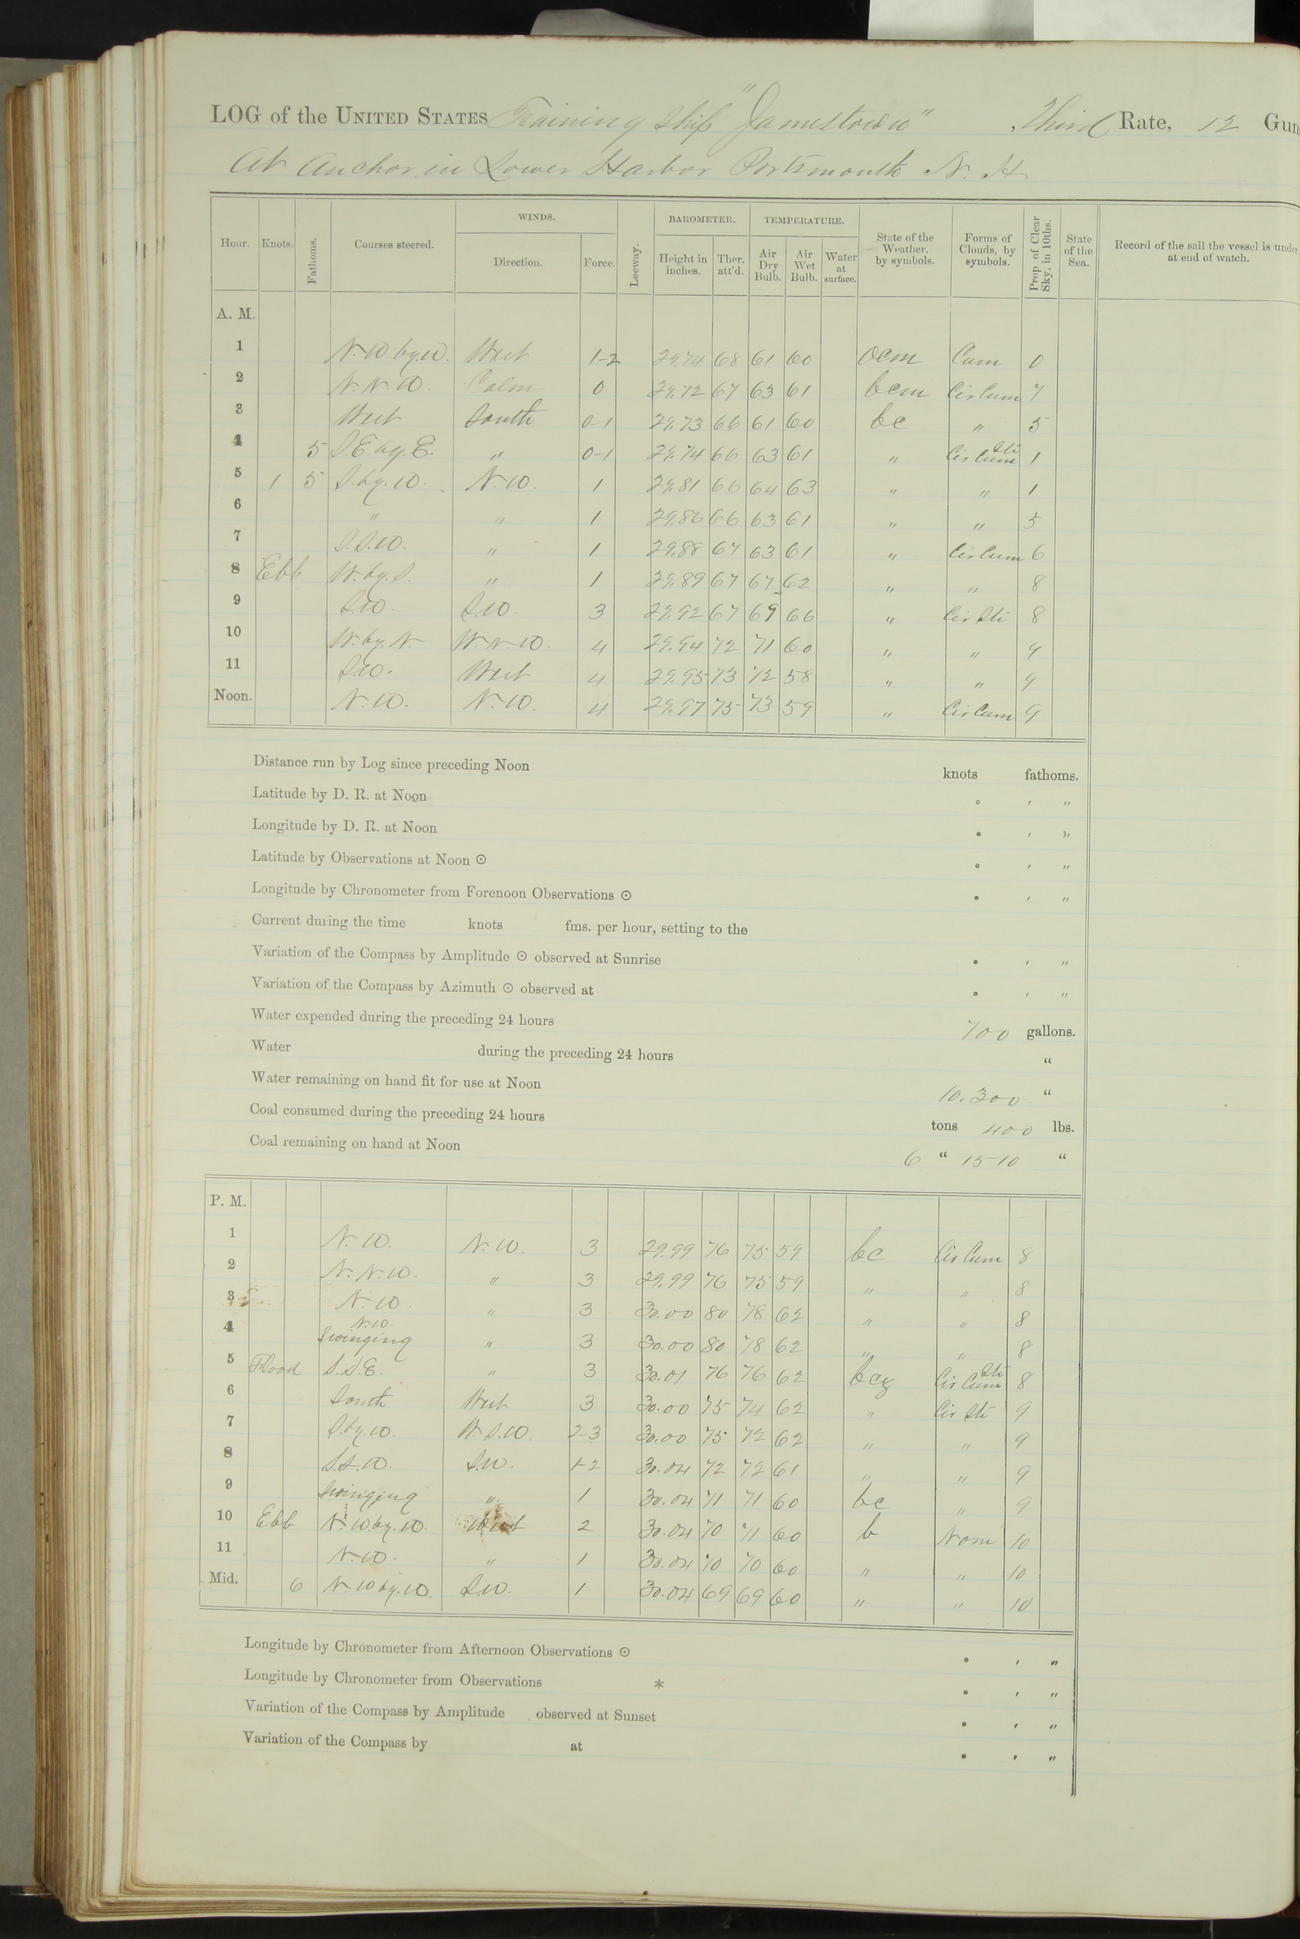 LOG of the UNITED STATES Training Ship "Jamestown" Third Rate, 12 Gun
At Anchor in Lower Harbor Portsmouth N. H.
WINDS. BAROMETER. TEMPERATURE.
Hour. Knots. Fathoms. Courses steered. Direction. Force. Leeway. Height in inches. Ther. att'd. Air Dry Bulb. Air Wet Bulb. Water at surface. State of the Weather, by symbols. Forms of Clouds, by symbols. Prop. of Clear Sky, in 10ths. State of the Sea. Record of the sail the vessel is under at end of watch.
A. M.
1 N.W. by W. West 1-2 29.74 68 61 60 ocm Cum 0
2 N.N.W. Calm 0 29.72 67 63 61 bcm Cir Cum 7
3 West South 0-1 29.73 66 61 60 bc " 5
4 5 S.E. by E. " 0-1 29.74 66 63 61 " Cir Cum Str 1
5 1 5 S. by W. N.W. 1 29.81 66 64 63 " " 1
6 " " 1 29.86 66 63 61 " " 5
7 S.S.W. " 1 29.88 67 63 61 " Cir Cum 6
8 Ebb W. by S. " 1 29.89 67 67 62 " " 8
9 S.W. S.W. 3 29.92 67 69 66 " Cir Str 8
10 W. by N. W.N.W. 4 29.94 72 71 60 " " 9
11 S.W. West 4 29.95 73 72 58 " " 9
Noon. N.W. N.W. 4 29.97 75 73 59 " Cir Cum 9
Distance run by Log since preceding Noon knots fathoms.
Latitude by D. R. at Noon ° ′ ″
Longitude by D. R. at Noon ° ′ ″
Latitude by Observations at Noon ☉ ° ′ ″
Longitude by Chronometer from Forenoon Observations ☉ ° ′ ″
Current during the time knots fms. per hour, setting to the
Variation of the Compass by Amplitude ☉ observed at Sunrise ° ′ ″
Variation of the Compass by Azimuth ☉ observed at ° ′ ″
Water expended during the preceding 24 hours 700 gallons.
Water during the preceding 24 hours "
Water remaining on hand fit for use at Noon 10.300 "
Coal consumed during the preceding 24 hours tons 400 lbs.
Coal remaining on hand at Noon 6 " 1510 "
P. M.
1 N.W. N.W. 3 29.99 76 75 59 bc Cir Cum 8
2 N.N.W. " 3 29.99 76 75 59 " " 8
3 N.W. " 3 30.00 80 78 62 " " 8
4 N.W. Swinging " 3 30.00 80 78 62 " " 8
5 Flood S.S.E. " 3 30.01 76 76 62 bcz Cir Cum Str 8
6 South West 3 30.00 75 74 62 " Cir Str 9
7 S. by W. W.S.W. 2-3 30.00 75 72 62 " " 9
8 S.S.W. S.W. 1-2 30.04 72 72 61 " " 9
9 Swinging " 1 30.04 71 71 60 bc " 9
10 Ebb N.W. by W. West 2 30.04 70 71 60 b None 10
11 N.W. " 1 30.04 70 70 60 " " 10
Mid. 6 N.W. by W. S.W. 1 30.04 69 69 60 " " 10
Longitude by Chronometer from Afternoon Observations ☉ ° ′ ″
Longitude by Chronometer from Observations * ° ′ ″
Variation of the Compass by Amplitude observed at Sunset ° ′ ″
Variation of the Compass by at ° ′ ″